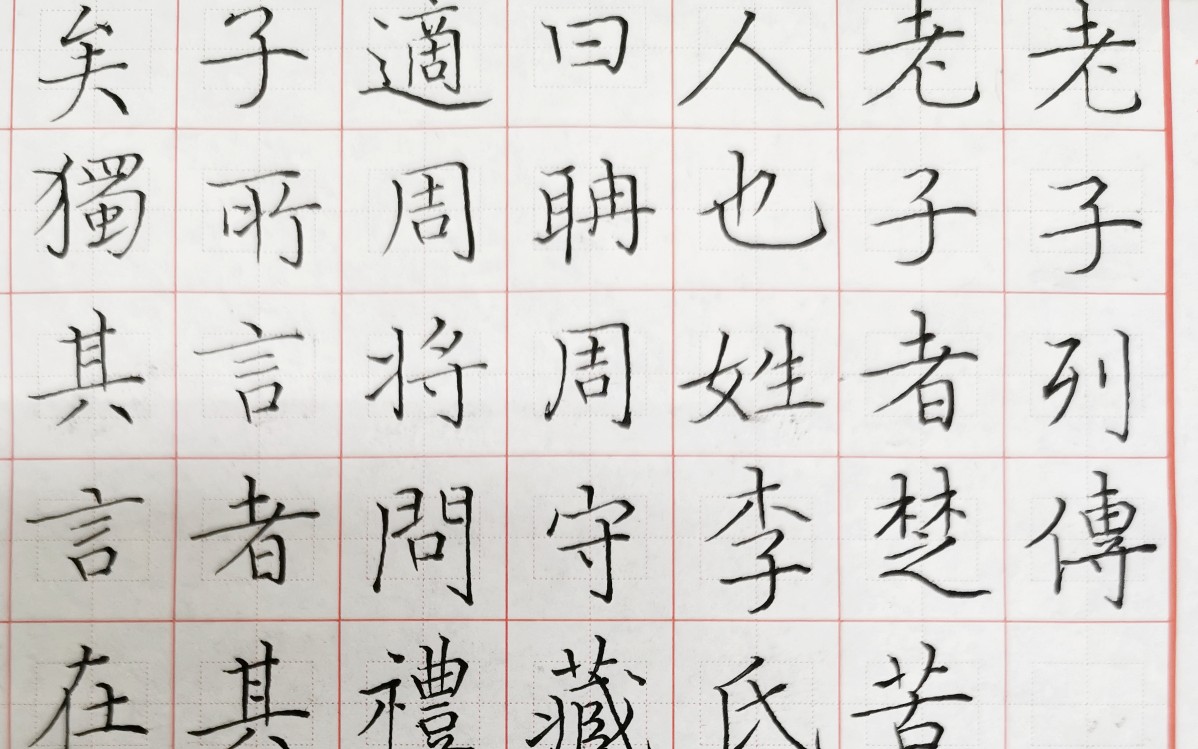 老子列傳
老子者楚苦
人也姓李氏
曰聃周守藏
適周將問禮
子所言者其
矣獨其言在